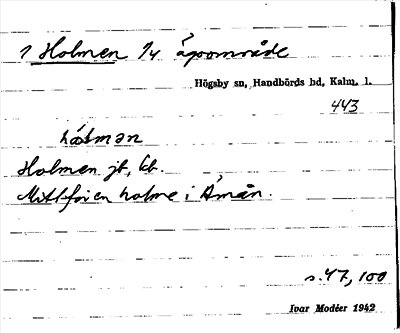 1 Holmen 1/4 ägoområde
Högsby sn, Handbörds hd, Kalm. l.
443
hólmən
Holmen jb, kb.
Mitt för en holme i Åmån.
s. 47, 100
Ivar Modéer 1942